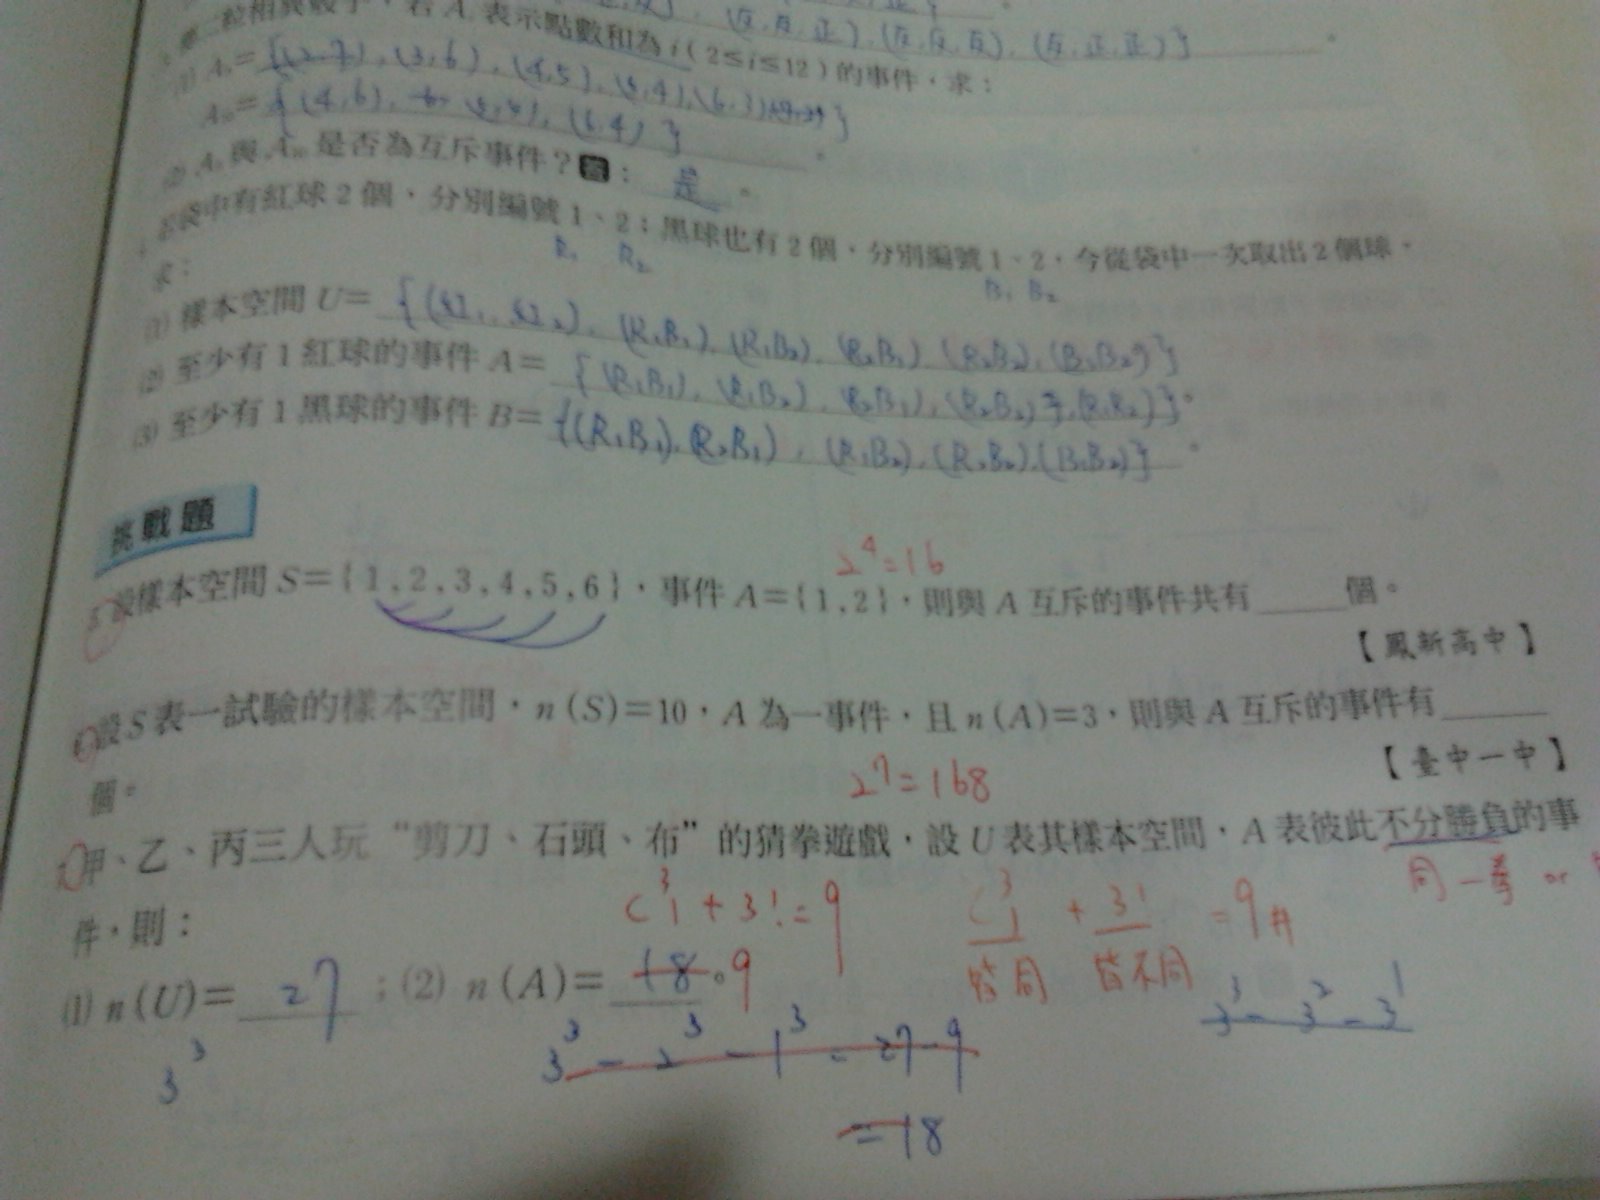 (反,反,正),(反,反,反),(反,正,正)}
粒相異骰子,若A 表示點數和為i(2≤i≤12)的事件,求:
(1) A = ,(3,6),(4,5),(5,4),(6,3) }
A = {(4,6), , (6,4)}。
(2) A 與A 是否為互斥事件?答: 是 。
若袋中有紅球2個,分別編號1、2;黑球也有2個,分別編號1、2,今從袋中一次取出2個球,
R₁ R₂ B₁ B₂
求:
(1) 樣本空間U= { , (R₁B₁), (R₁B₂), (R₂B₁), (R₂B₂), (B₁B₂)}
(2) 至少有1紅球的事件A= {(R₁B₁), (R₁B₂), (R₂B₁), (R₂B₂), (R₁R₂)}。
(3) 至少有1黑球的事件B= {(R₁B₁), (R₂B₁), (R₁B₂), (R₂B₂), (B₁B₂)}。
挑戰題
2⁴=16
5. 設樣本空間S={1,2,3,4,5,6},事件A={1,2},則與A互斥的事件共有 個。
【鳳新高中】
6. 設S表一試驗的樣本空間,n(S)=10,A為一事件,且n(A)=3,則與A互斥的事件有
個。 2⁷=168 【臺中一中】
7. 甲、乙、丙三人玩“剪刀、石頭、布”的猜拳遊戲,設U表其樣本空間,A表彼此不分勝負的事
同一拳 or
件,則: C³₁+3!=9 C³₁ + 3! =9#
皆同 皆不同
(1) n(U)= 27 ;(2) n(A)= 18 。9
3³ 3³-2³-1³=27-9 3³-3²-3¹
=18